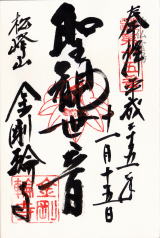 奉拝 平成二十五年
十一月十五日
聖観世音
松峰山
金剛輪寺